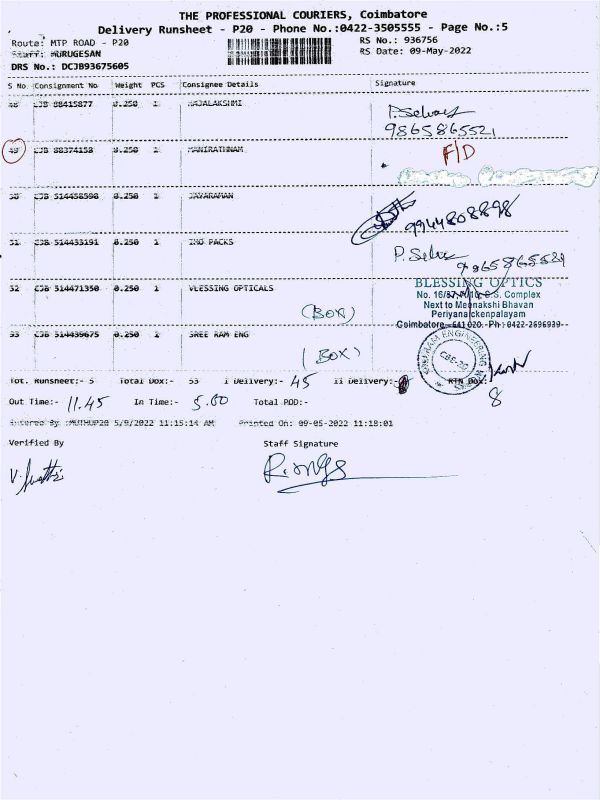 THE PROFESSIONAL COURIERS, Coimbatore
Delivery Runsheet - P20 - Phone No.:0422-3505555 - Page No.:5
Route: MTP ROAD - P20 RS No.: 936756
Staff: MURUGESAN RS Date: 09-May-2022
DRS No.: DCJB93675605
S No. Consignment No Weight PCS Consignee Details Signature
48 CJB 88415877 0.250 1 RAJALAKSHMI P. Selvas
9865865521
49 CJB 88374153 0.250 1 MANIRATHNAM F/D
50 CJB 514458598 0.250 1 JAYARAMAN 9944808898
51 CJB 514433191 0.250 1 IMO PACKS 9865865521
52 CJB 514471350 0.250 1 VLESSING OPTICALS BLESSING OPTICS
No. 16/87, Complex
(BOX) Next to Meenakshi Bhavan
Periyanaickenpalayam
53 CJB 514439675 0.250 1 SREE RAM ENG Coimbatore - 641 020. Ph : 0422-2696939
(BOX) ENGINEERING
CBE-20
Tot. Runsheet:- 5 Total Dox:- 53 I Delivery:- 45 II Delivery:- RTN Dox:
8
Out Time:- 11.45 In Time:- 5.00 Total POD:-
Entered By :MUTHUP20 5/9/2022 11:15:14 AM Printed On: 09-05-2022 11:18:01
Verified By Staff Signature